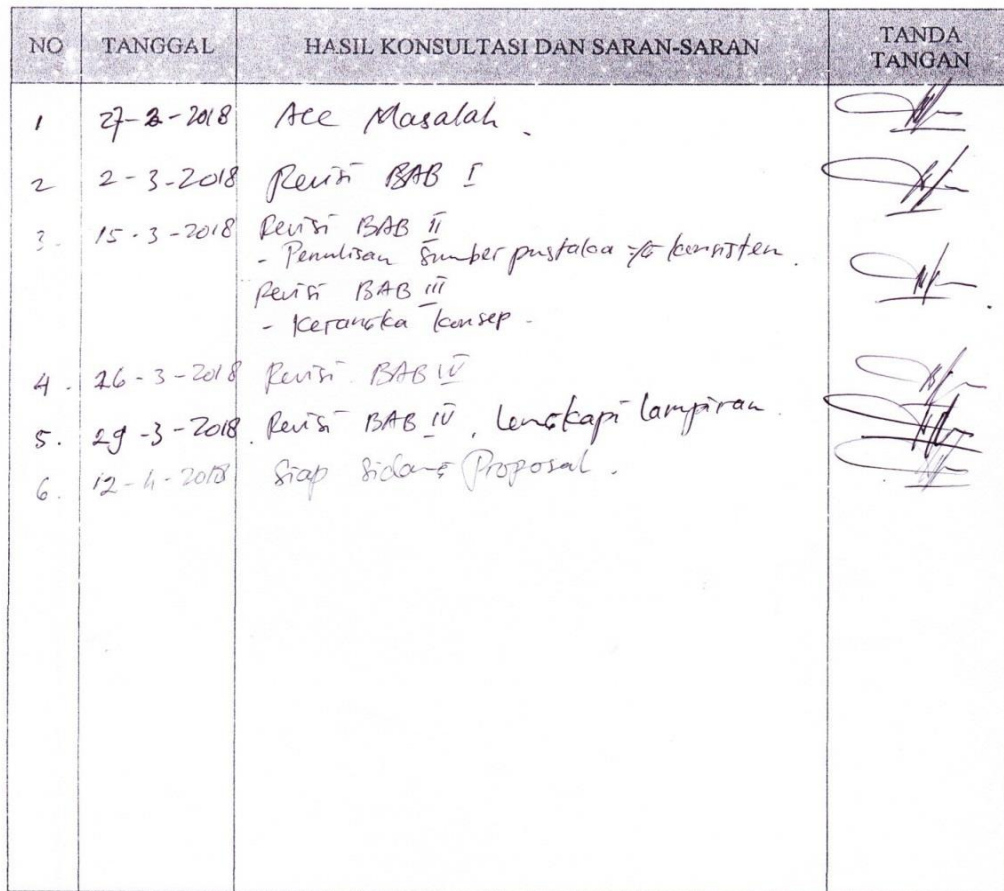 NO TANGGAL HASIL KONSULTASI DAN SARAN-SARAN TANDA TANGAN
1 27-2-2018 Acc Masalah.
2 2-3-2018 Revisi BAB I
3. 15-3-2018 Revisi BAB II
- Penulisan sumber pustaka konsisten.
Revisi BAB III
- Kerangka konsep.
4. 26-3-2018 Revisi BAB IV
5. 29-3-2018. Revisi BAB IV, lengkapi lampiran.
6. 12-4-2018 Siap Sidang Proposal.